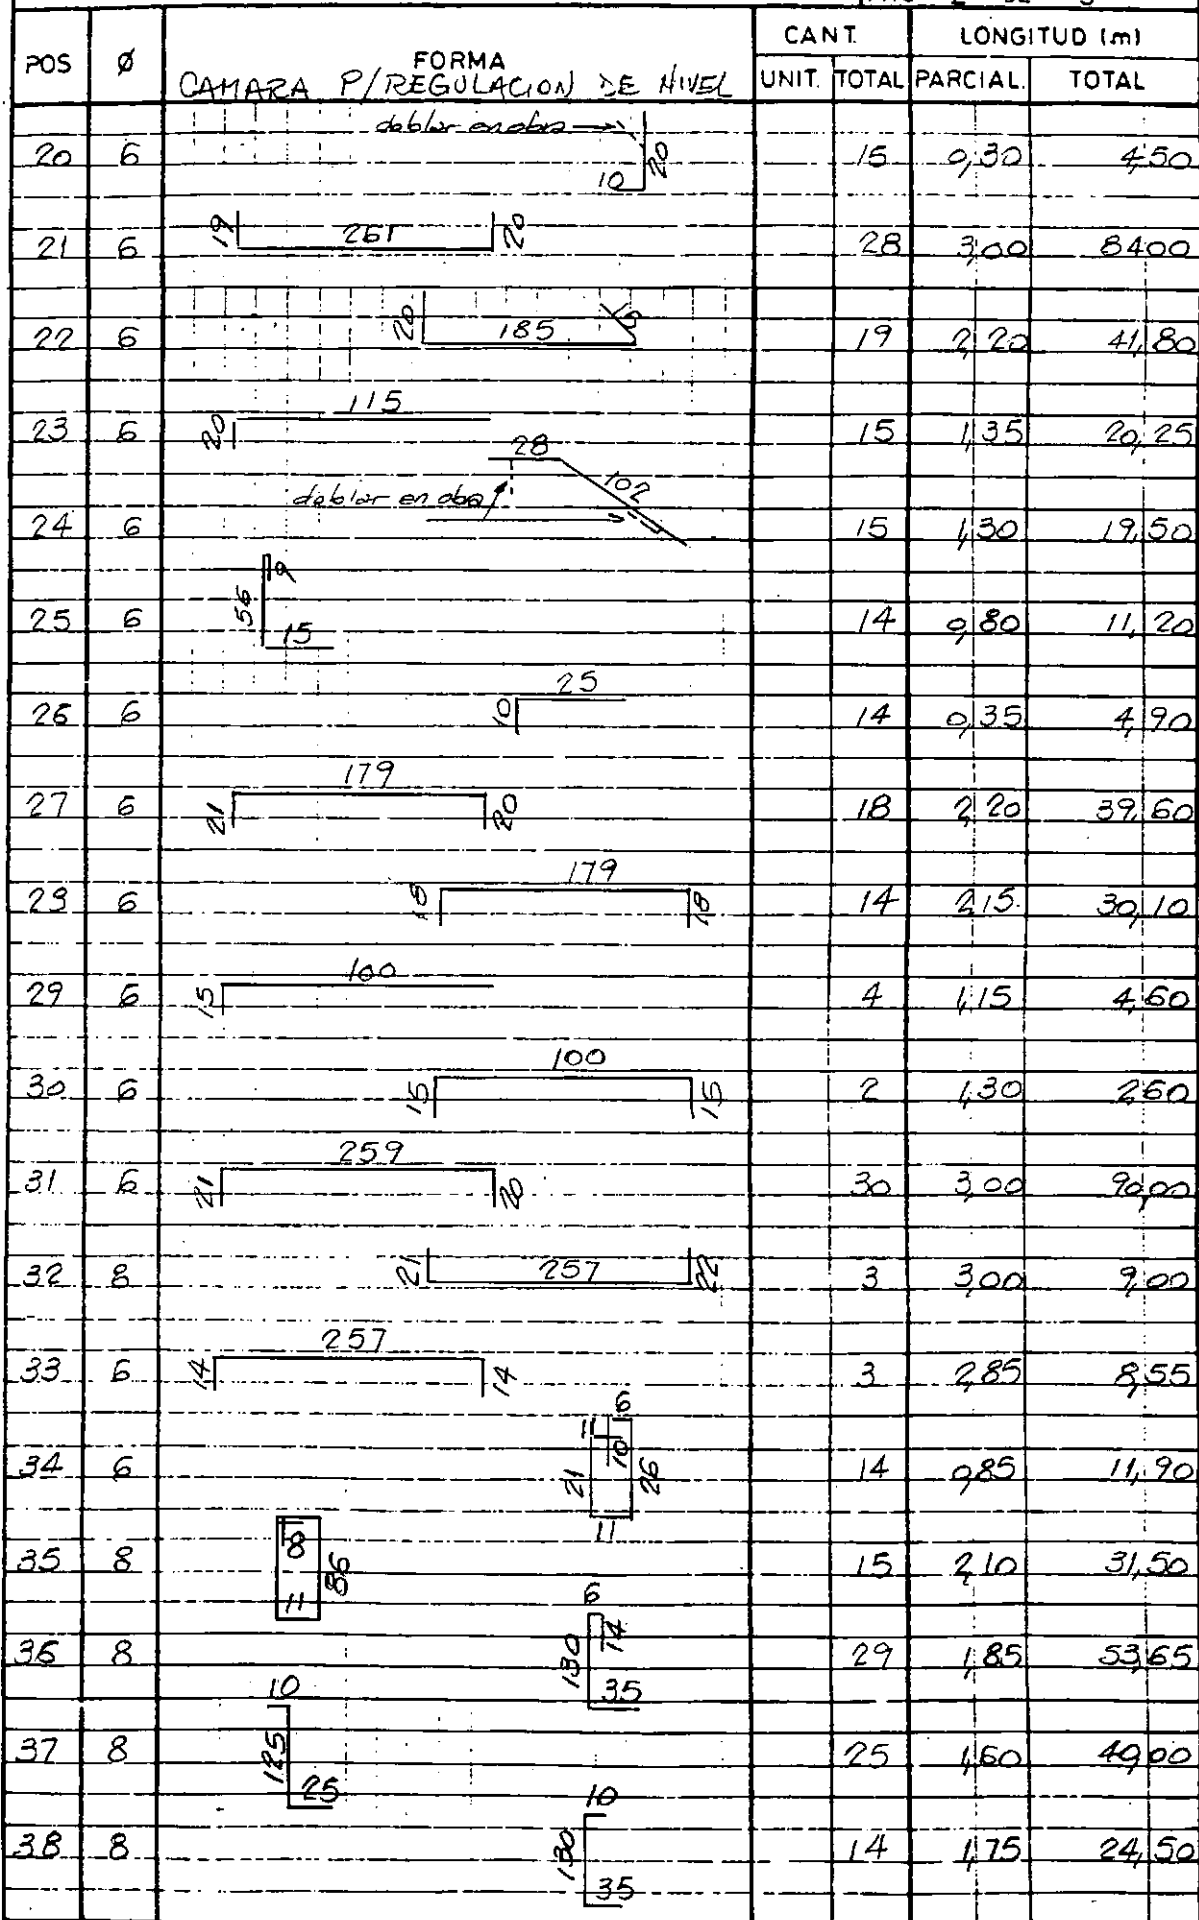 POS Ø FORMA CANT. LONGITUD (m)
CAMARA P/REGULACION DE NIVEL UNIT. TOTAL PARCIAL. TOTAL
doblar en obra
20 6 10 20 15 0,30 4,50
21 6 19 261 20 28 3,00 84,00
22 6 20 185 15 19 2,20 41,80
23 6 20 115 15 1,35 20,25
28 102
doblar en obra
24 6 15 1,30 19,50
25 6 56 9 15 14 0,80 11,20
26 6 10 25 14 0,35 4,90
27 6 21 179 20 18 2,20 39,60
28 6 18 179 18 14 2,15 30,10
29 6 15 100 4 1,15 4,60
30 6 15 100 15 2 1,30 2,60
31 6 21 259 20 30 3,00 90,00
32 8 21 257 22 3 3,00 9,00
33 6 14 257 14 3 2,85 8,55
34 6 6 11 10 21 26 11 14 0,85 11,90
35 8 8 86 11 15 2,10 31,50
36 8 6 14 130 35 29 1,85 53,65
37 8 10 125 25 25 1,60 40,00
38 8 10 130 35 14 1,75 24,50